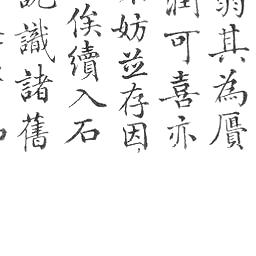 其為贗
可喜亦
妨並存因
俟續入石
識諸舊